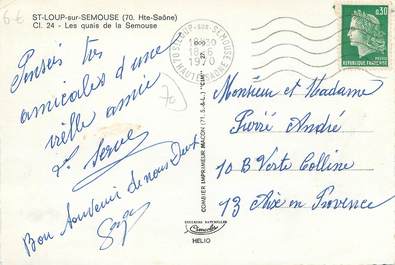 6€
ST-LOUP-sur-SEMOUSE (70. Hte-Saône)
Cl. 24 - Les quais de la Semouse
Pensées très
amicales d'une
vieille amie
Bon Souvenir de nous Deux
70
70 ST-LOUP-sur-SEMOUSE
1970
HAUTE-SAONE
0,30
REPUBLIQUE FRANÇAISE
COMBIER IMPRIMEUR MACON (71. S.-&-L.) "CIM"
Monsieur et Madame
Pierré André
10 B Verte Colline
13 Aix en Provence
COULEURS NATURELLES
HELIO